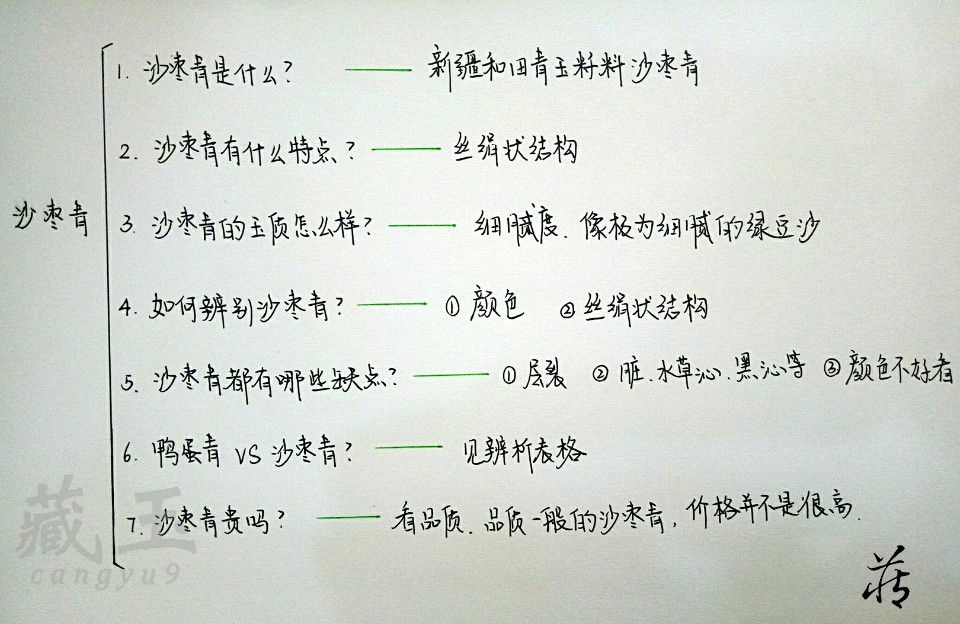 沙枣青
1. 沙枣青是什么? —— 新疆和田青玉籽料沙枣青
2. 沙枣青有什么特点? —— 丝绢状结构
3. 沙枣青的玉质怎么样? —— 细腻度、像极为细腻的绿豆沙
4. 如何辨别沙枣青? —— ①颜色 ②丝绢状结构
5. 沙枣青都有哪些缺点? —— ①层裂 ②脏、水草沁、黑沁等 ③颜色不好看
6. 鸭蛋青 VS 沙枣青? —— 见辨析表格
7. 沙枣青贵吗? —— 看品质、品质一般的沙枣青,价格并不是很高.
藏玉
cangyu9